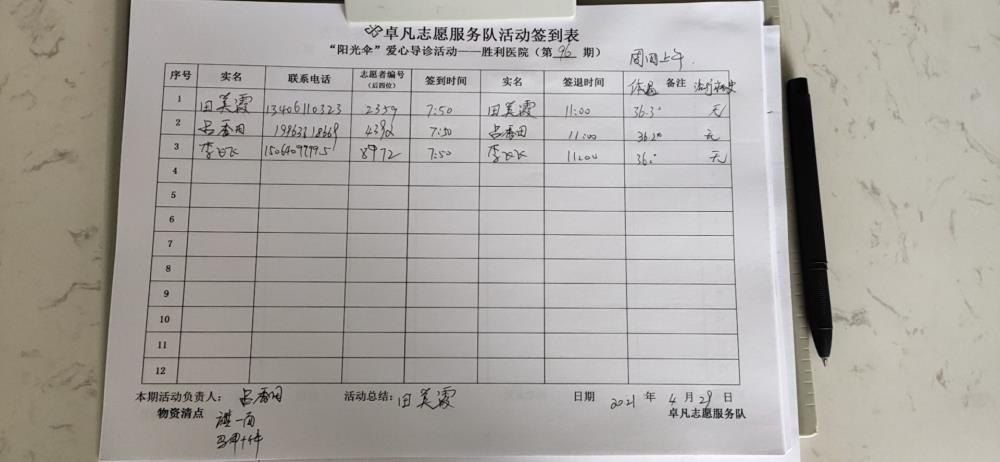 卓凡志愿服务队活动签到表
“阳光伞”爱心导诊活动——胜利医院（第 96 期） 周四上午
序号 实名 联系电话 志愿者编号（后四位） 签到时间 实名 签退时间 体温 备注
1 田美霞 13406110323 2359 7:50 田美霞 11:00 36.3° 无
2 吕香田 7:50 吕香田 11:00 36.2° 无
3 李飞飞 8972 7:50 李飞飞 11:00 无
4
5
6
7
8
9
10
11
12
本期活动负责人： 吕香田 活动总结： 田美霞 日期 2021 年 4 月 29 日
物资清点 卓凡志愿服务队
旗一面
马甲十件